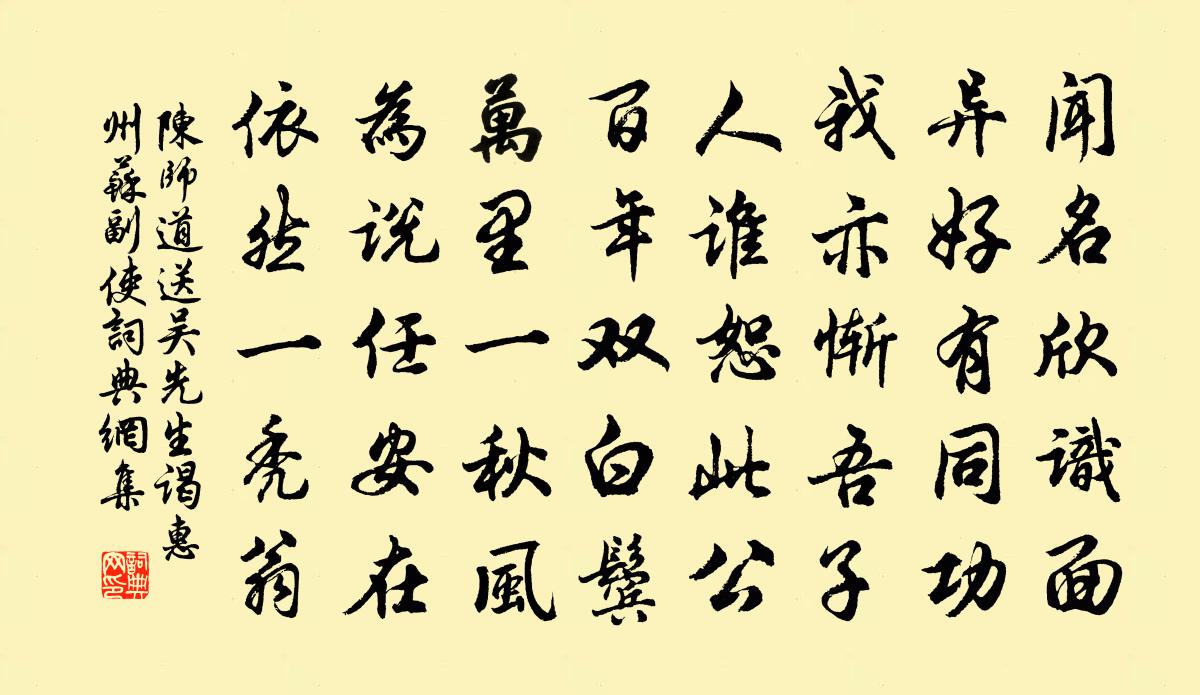 闻名欣識面
异好有同功
我亦惭吾子
人谁恕此公
百年双白鬓
萬里一秋風
為说任安在
依然一秃翁
陳師道送吴先生谒惠
州蘇副使詞典網集
詞典网印